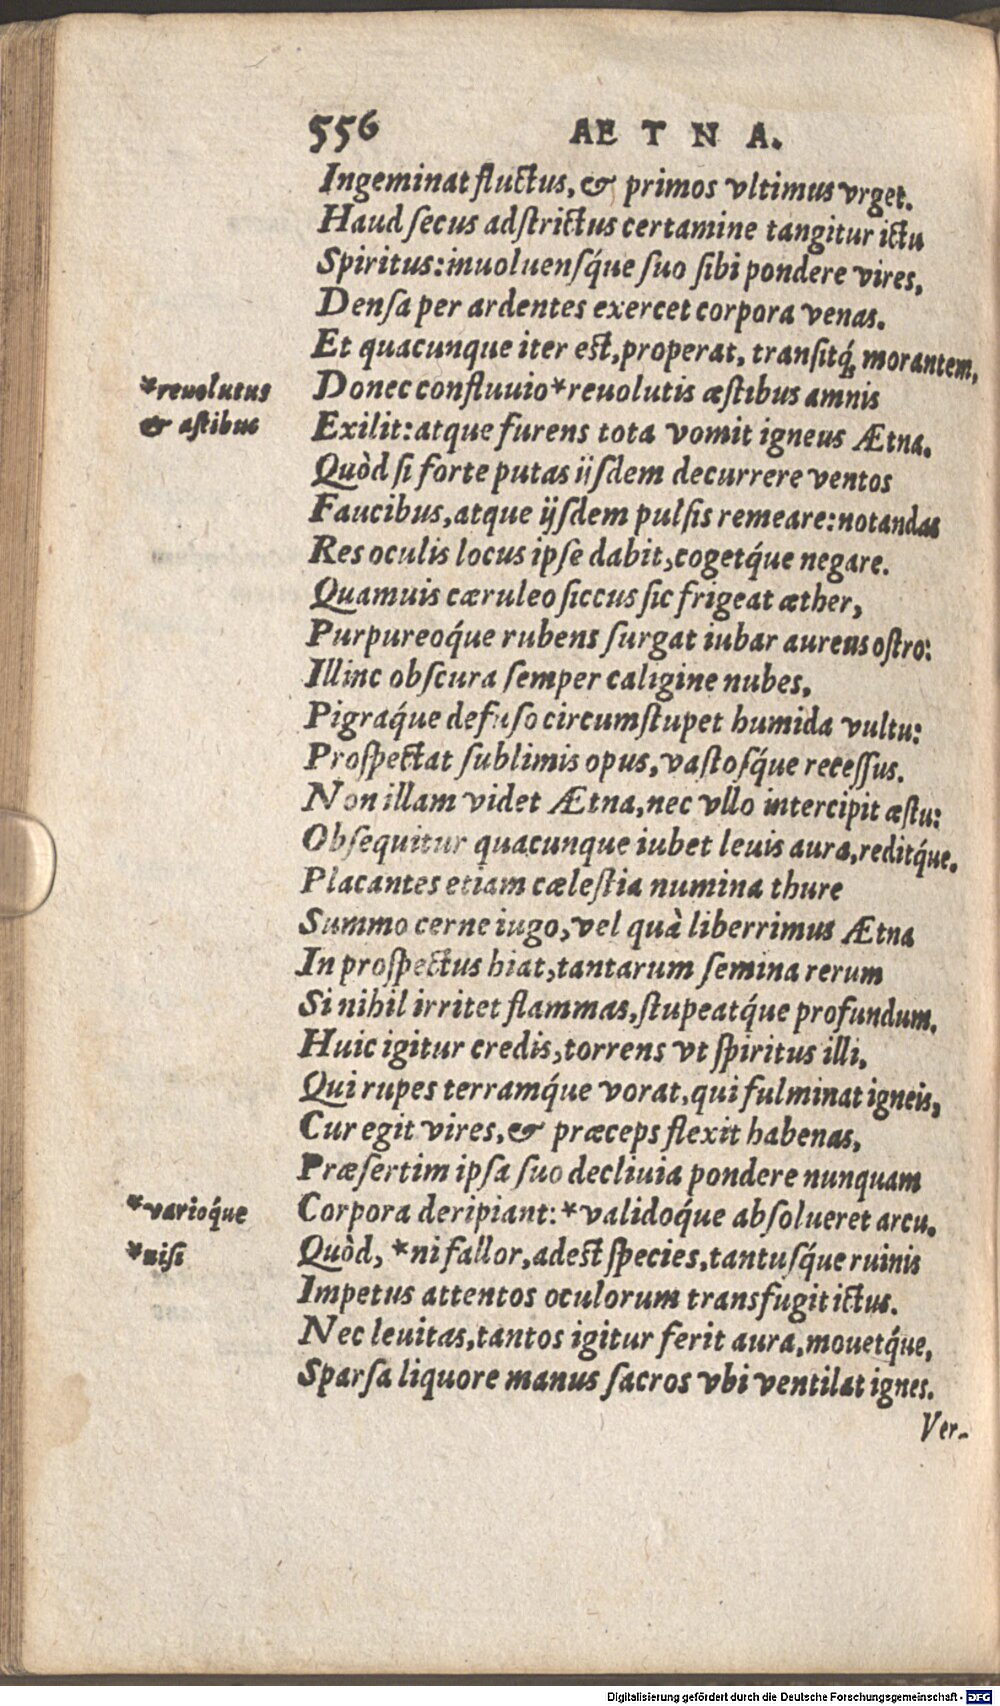 556 AETNA.
Ingeminat fluctus, & primos vltimus vrget.
Haud ſecus adſtrictus certamine tangitur ictu
Spiritus: inuoluenſq́ue ſuo ſibi pondere vires,
Denſa per ardentes exercet corpora venas.
Et quacunque iter est, properat, tranſitq́, morantem,
*reuolutus
& æſtibus
Donec confluuio *reuolutis æſtibus amnis
Exilit: atque furens tota vomit igneus Ætna.
Quòd ſi forte putas ijſdem decurrere ventos
Faucibus, atque ijſdem pulſis remeare: notandas
Res oculis locus ipſe dabit, cogetq́ue negare.
Quamuis cæruleo ſiccus ſic frigeat æther,
Purpureoq́ue rubens ſurgat iubar aureus oſtro:
Illinc obſcura ſemper caligine nubes,
Pigraq́ue defuſo circumſtupet humida vultu:
Proſpectat ſublimis opus, vaſtoſq́ue receſſus.
Non illam videt Ætna, nec vllo intercipit æſtu:
Obſequitur quacunque iubet leuis aura, reditq́ue.
Placantes etiam cæleſtia numina thure
Summo cerne iugo, vel quà liberrimus Ætna
In proſpectus hiat, tantarum ſemina rerum
Si nihil irritet flammas, ſtupeatq́ue profundum.
Huic igitur credis, torrens vt ſpiritus illi,
Qui rupes terramq́ue vorat, qui fulminat igneis,
Cur egit vires, & præceps flexit habenas,
Præſertim ipſa ſuo decliuia pondere nunquam
*varioq́ue
Corpora deripiant: *validoq́ue abſolueret arcu.
*niſi
Quòd, *ni fallor, adest ſpecies, tantuſq́ue ruinis
Impetus attentos oculorum transfugit ictus.
Nec leuitas, tantos igitur ferit aura, mouetq́ue,
Sparſa liquore manus ſacros vbi ventilat ignes.
Ver-
Digitalisierung gefördert durch die Deutsche Forschungsgemeinschaft - DFG